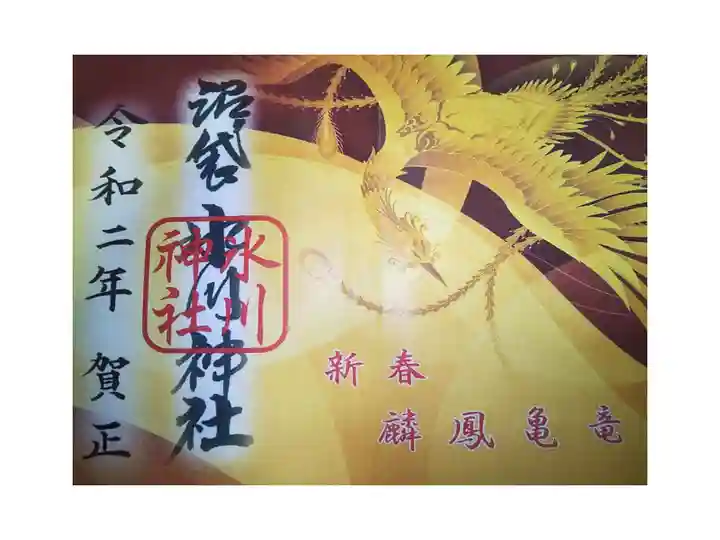 沼袋氷川神社
氷川
神社
令和二年 賀正
新春
麟鳳亀竜